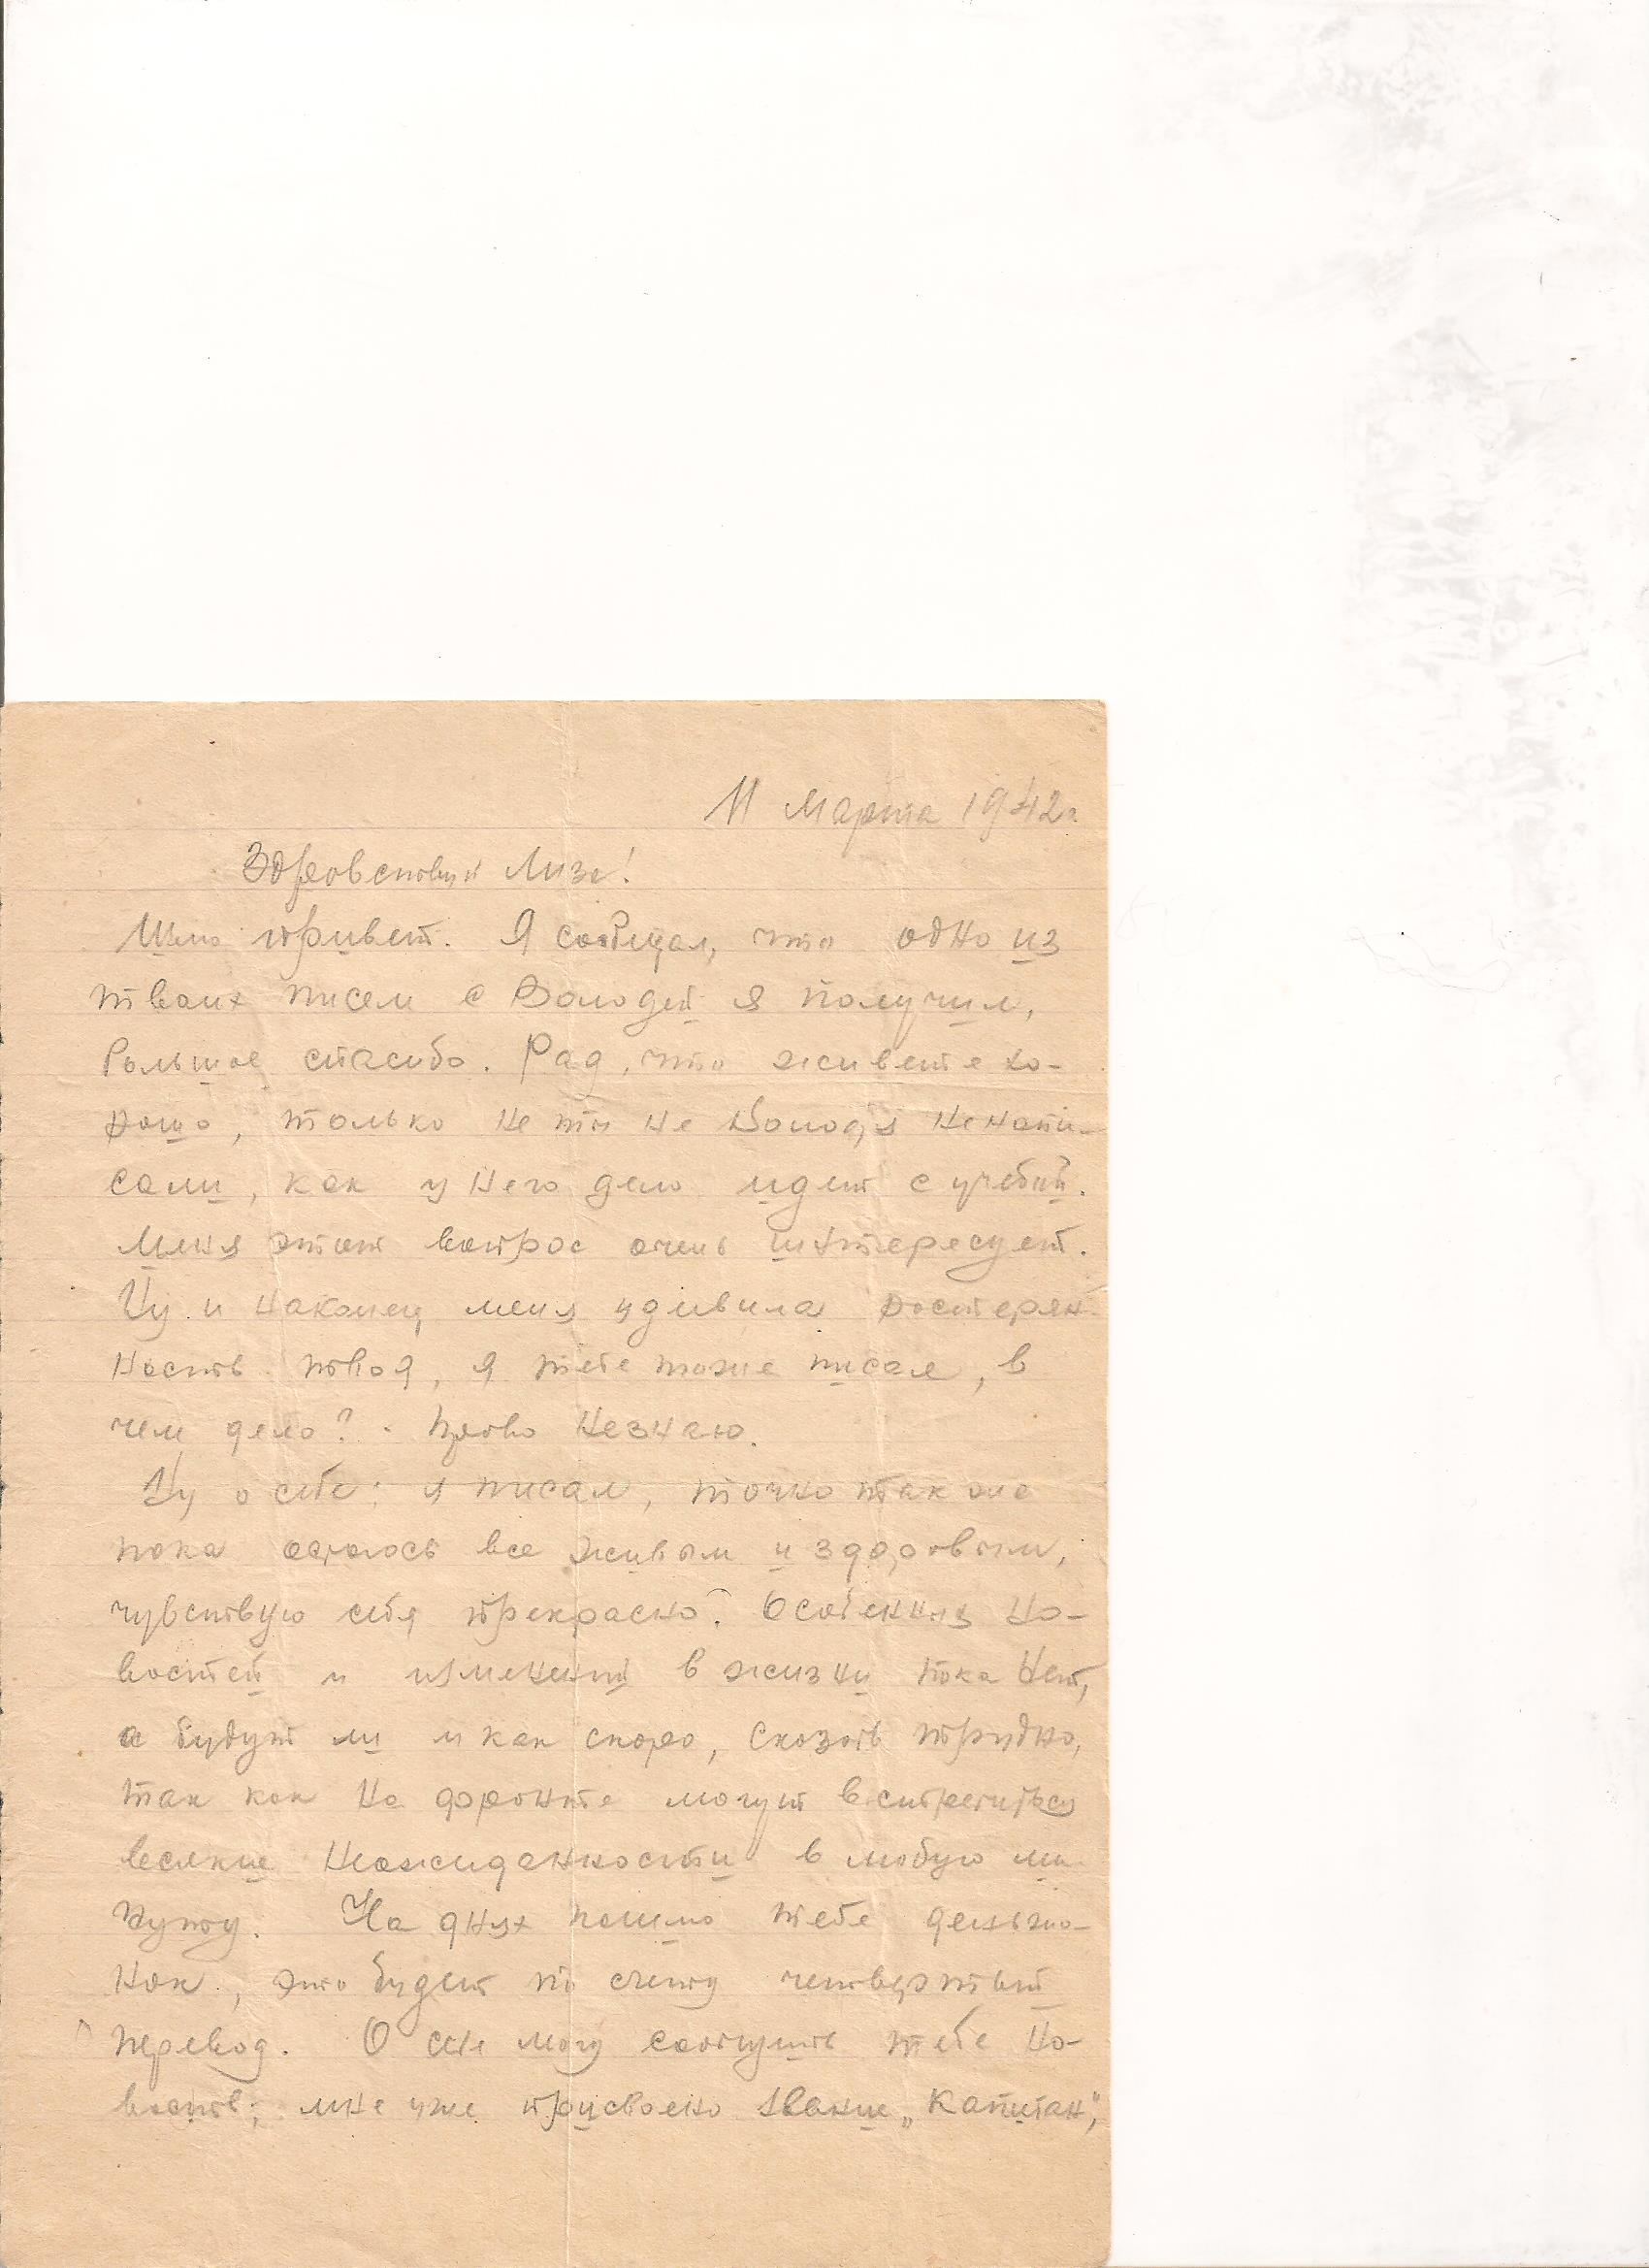 11 Марта 1942г.
Здравствуй Лиза!
Шлю привет. Я сообщал, что одно из
твоих писем с Володей я получил,
большое спасибо. Рад, что живете хо-
рошо, только не ты не Володя ненапи-
сали, как у него дело идет с учебой.
Меня этот вопрос очень интересует.
Ну и наконец меня удивила растерян-
ность твоя, я тебе тоже писал, в
чем дело? Право незнаю.
Ну о себе: я писал, точно так же
пока осталось все живым и здоровым,
чувствую себя прекрасно. Особенных но-
востей и изменений в жизни пока нет,
а будут ли и как скоро, сказать трудно,
так как на фронте могут встретиться
всякие неожиданности в любую ми-
нуту. На днях пошлю тебе деньжо-
нок, это будет по счету четвертый
перевод. О себе могу сообщить тебе но-
вость; мне уже присвоено звание „Капитан",